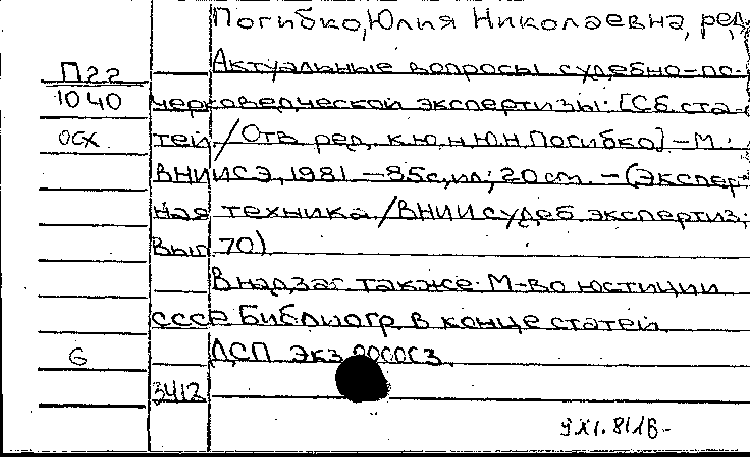 Погибко, Юлия Николаевна, ред.
П22 Актуальные вопросы судебно-по-
1040 черковедческой экспертизы: [Сб. ста-
ОСХ тей / Отв. ред. к.ю.н Ю.Н. Погибко]. - М.:
ВНИИСЭ, 1981. - 85с, ил; 20 см. - (Эксперт-
ная техника / ВНИИ судеб. экспертиз;
Вып. 70)
В надзаг. также: М-во юстиции
СССР Библиогр. в конце статей
6 ДСП Экз. 000003.
3412